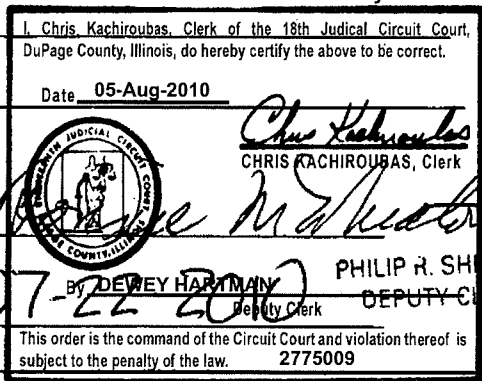 I, Chris Kachiroubas, Clerk of the 18th Judical Circuit Court,
DuPage County, Illinois, do hereby certify the above to be correct.
Date 05-Aug-2010
Chris Kachiroubas
CHRIS KACHIROUBAS, Clerk
EIGHTEENTH JUDICIAL CIRCUIT COURT
DUPAGE COUNTY, ILLINOIS
By DEWEY HARTMAN
PHILIP R. SH
7-22 2010
Deputy Clerk
DEPUTY CL
This order is the command of the Circuit Court and violation thereof is
subject to the penalty of the law. 2775009